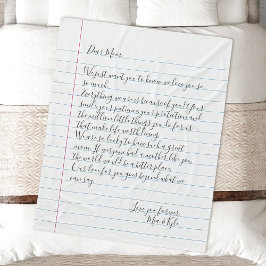 Dear Mom,
We just want you to know we love you so
so much.
Everything we are is because of you! Your
smile, your patience, your protection, and
the endless little things you do for us
that make life worth living.
We are so lucky to have such a great
mom. If everyone had a mother like you
the world would be a better place.
Our love for you goes beyond what we
can say.
Love you forever,
Mia & Kyle